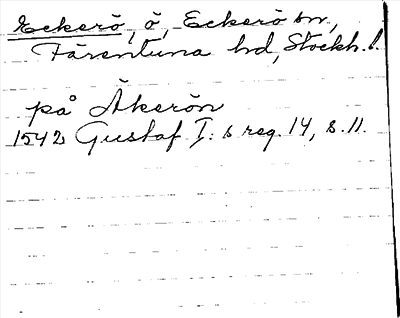 Eckerö, ö, Eckerö sn,
Färentuna hd, Stockh. l.
på Åkerön
1542 Gustaf I:s reg. 14, s. 11.